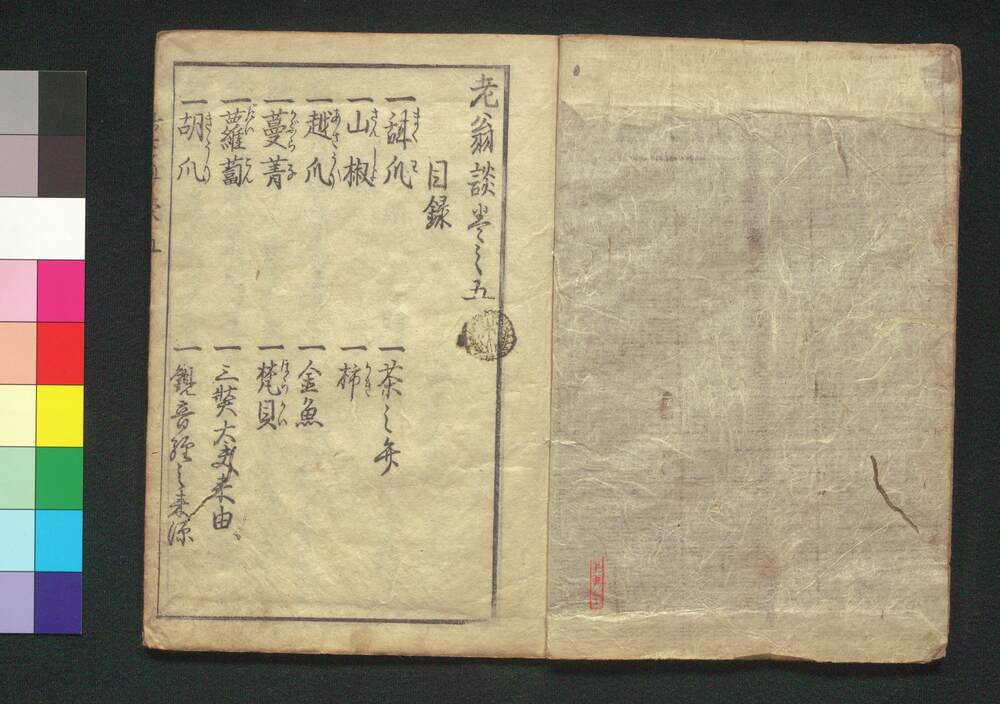 老翁談巻之五
目録
一 甜爪
一 山椒
一 越爪
一 蔓菁
一 蘿蔔
一 胡爪
一 茶之弁
一 柿
一 金魚
一 梵貝
一 三弉大来由
一 観音経之来源